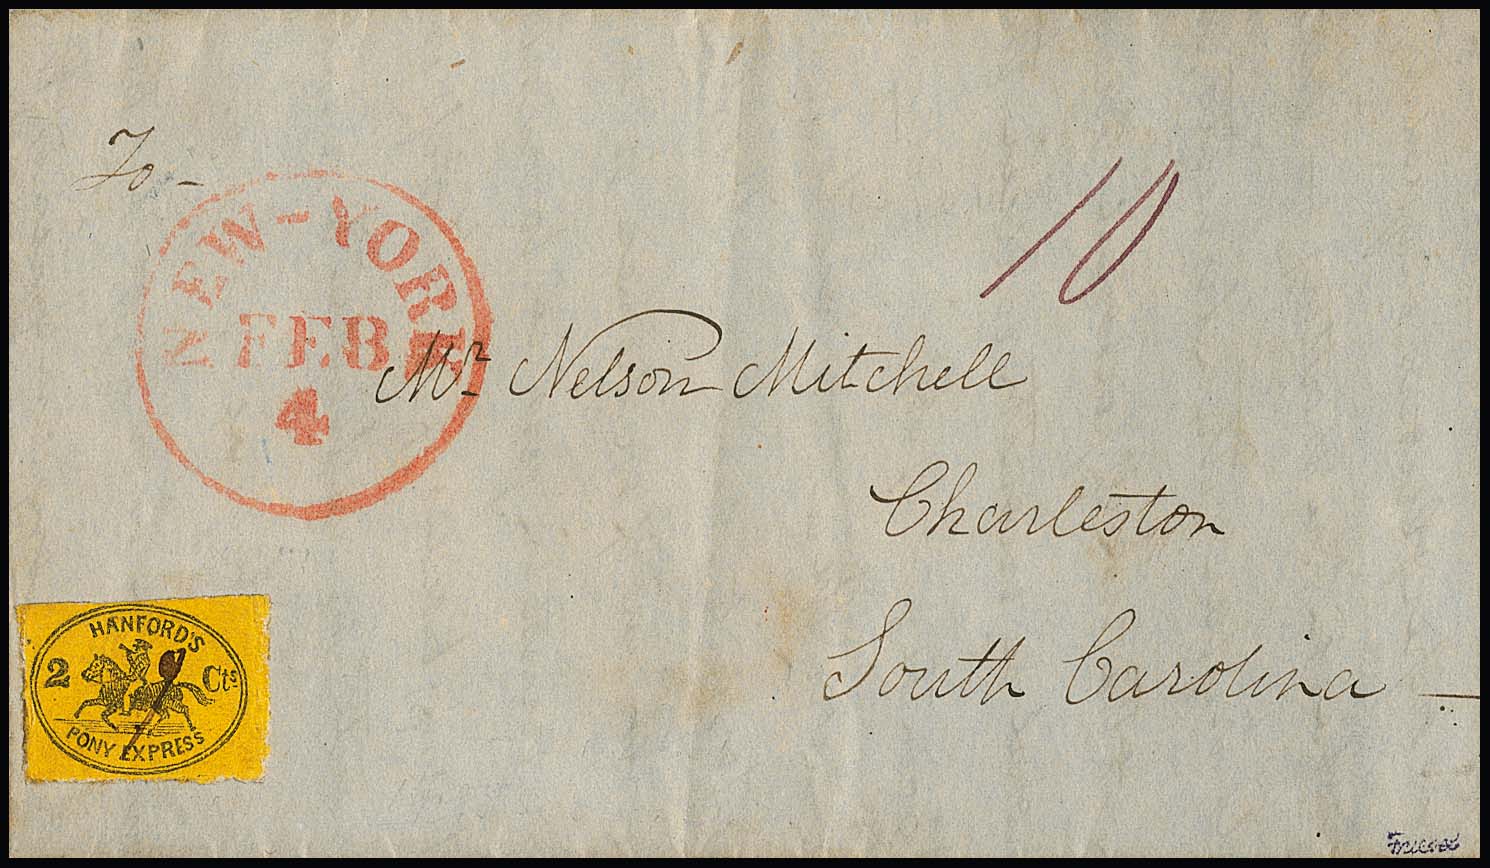 To -
NEW-YORK
FEB
4
10
Mr Nelson Mitchell
Charleston
South Carolina
HANFORD'S
2 Cts
PONY EXPRESS